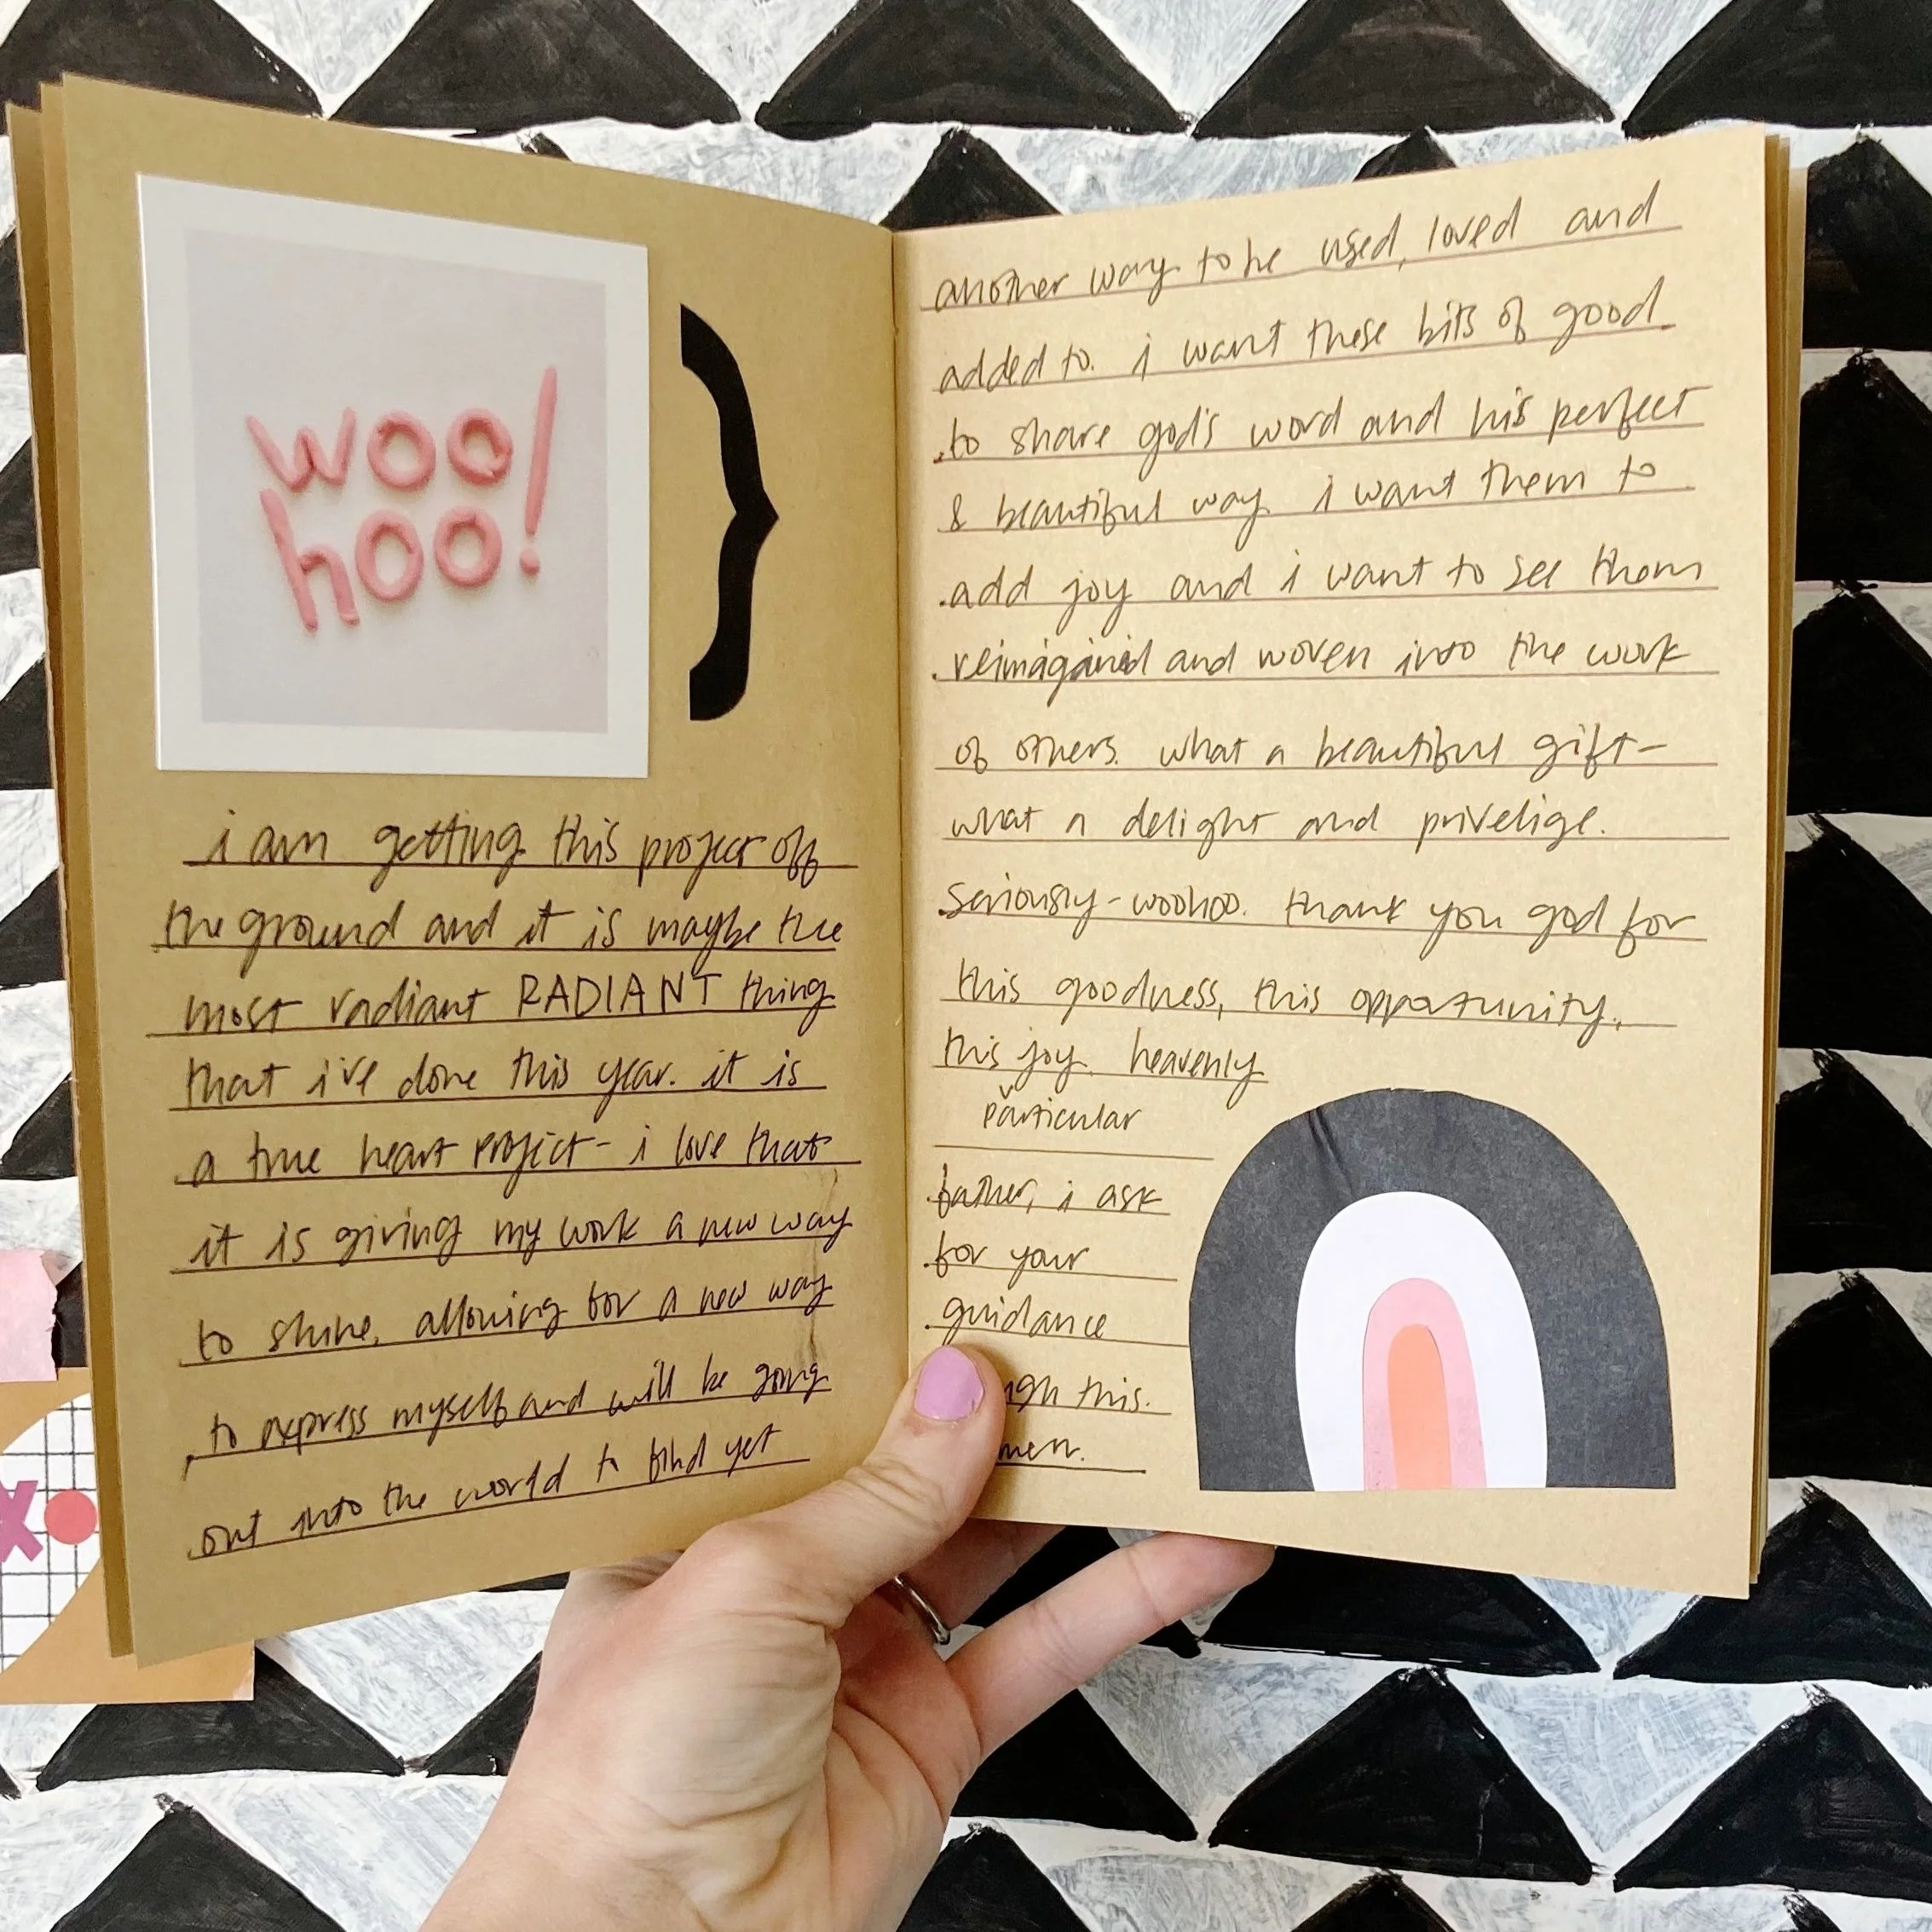 woo
hoo!
i am getting this project off
the ground and it is maybe the
most radiant RADIANT thing
that i've done this year. it is
a true heart project - i love that
it is giving my work a new way
to shine, allowing for a new way
to express myself and will be going
out into the world to find yet
another way to be used, loved and
added to. i want these bits of good
to share god's word and his perfect
& beautiful way. i want them to
add joy and i want to see them
reimagined and woven into the work
of others. what a beautiful gift-
what a delight and privelige.
seriously - woohoo. thank you god for
this goodness, this opportunity,
this joy. heavenly
particular
father, i ask
for your
guidance
ugh this.
men.
x